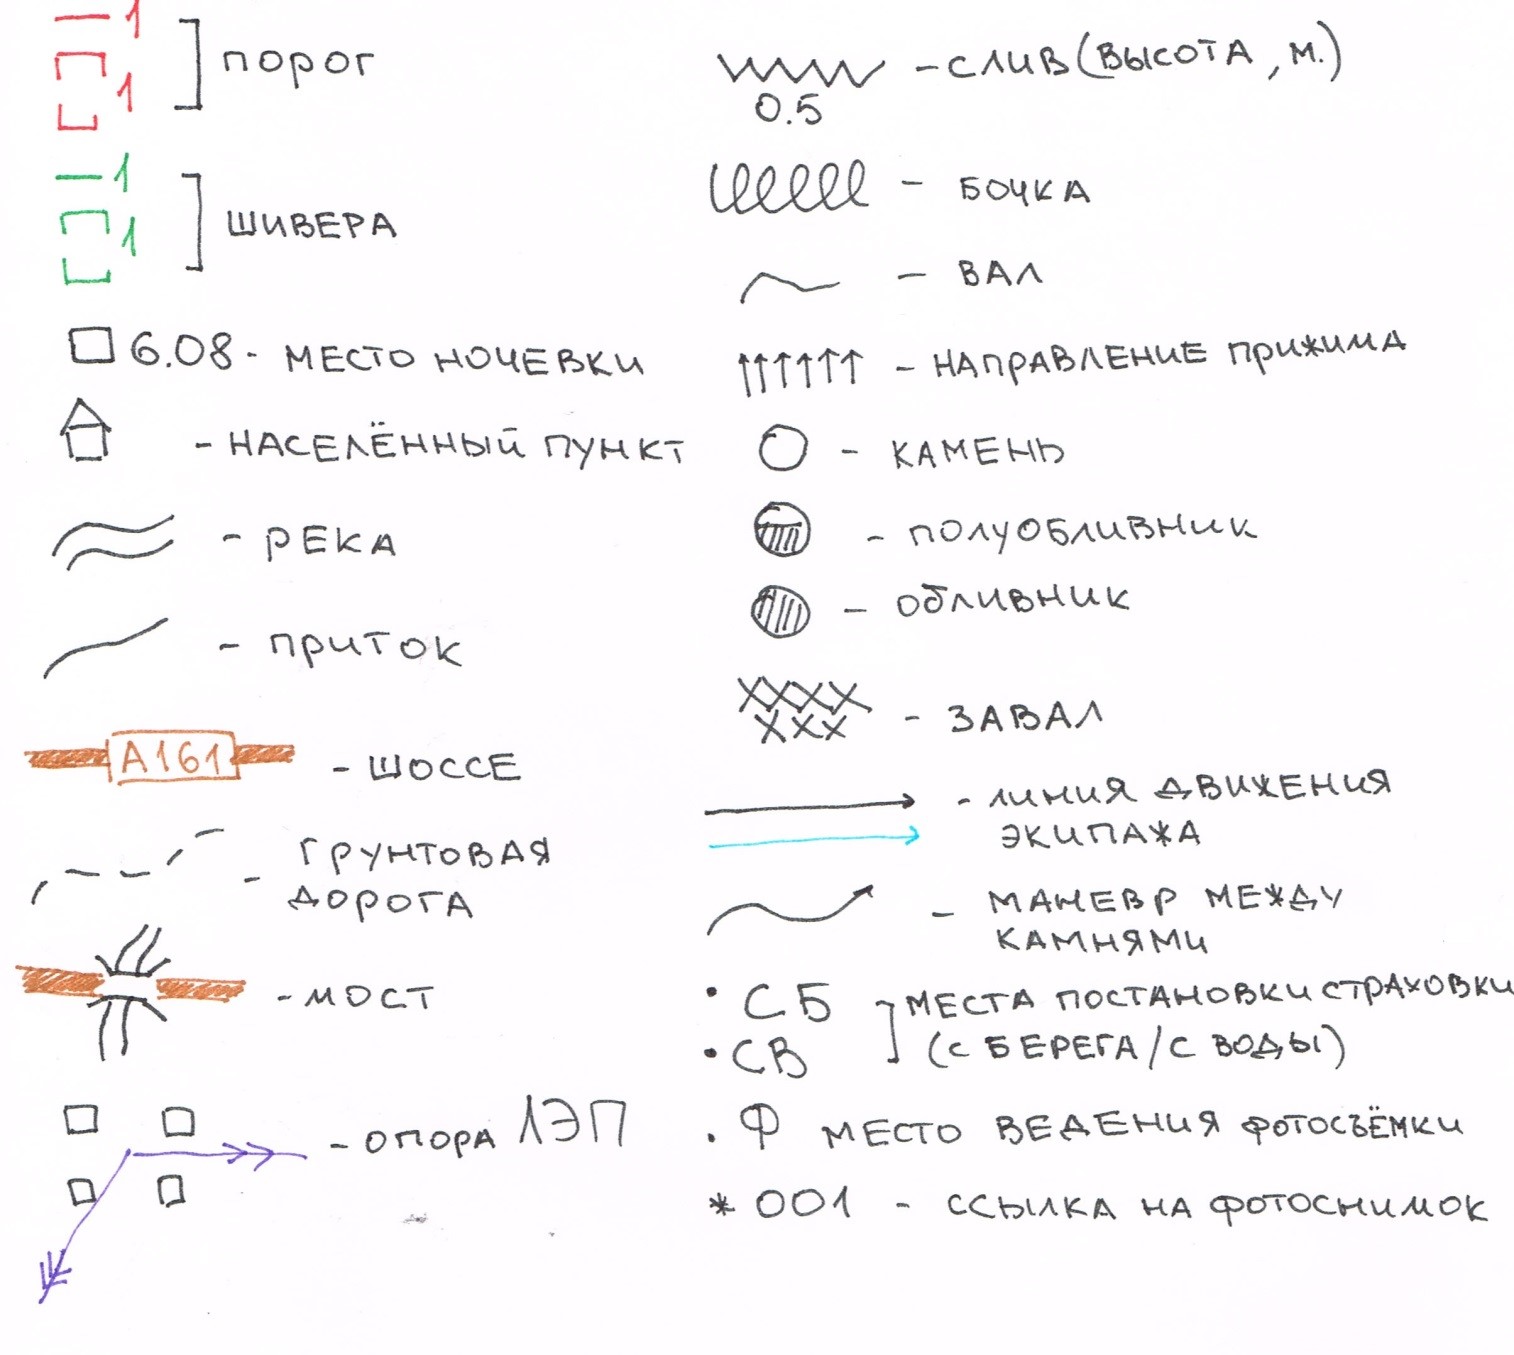 1
1
] ПОРОГ
1
1
] ШИВЕРА
6.08 - МЕСТО НОЧЕВКИ
- НАСЕЛЁННЫЙ ПУНКТ
- РЕКА
- ПРИТОК
А161 - ШОССЕ
- ГРУНТОВАЯ
ДОРОГА
- МОСТ
- ОПОРА ЛЭП
- СЛИВ (ВЫСОТА, М.)
0.5
- БОЧКА
- ВАЛ
- НАПРАВЛЕНИЕ ПРИЖИМА
- КАМЕНЬ
- ПОЛУОБЛИВНИК
- ОБЛИВНИК
- ЗАВАЛ
- ЛИНИЯ ДВИЖЕНИЯ
ЭКИПАЖА
- МАНЕВР МЕЖДУ
КАМНЯМИ
• СБ ] МЕСТА ПОСТАНОВКИ СТРАХОВКИ
• СВ (С БЕРЕГА/С ВОДЫ)
. Ф МЕСТО ВЕДЕНИЯ ФОТОСЪЁМКИ
* 001 - ССЫЛКА НА ФОТОСНИМОК